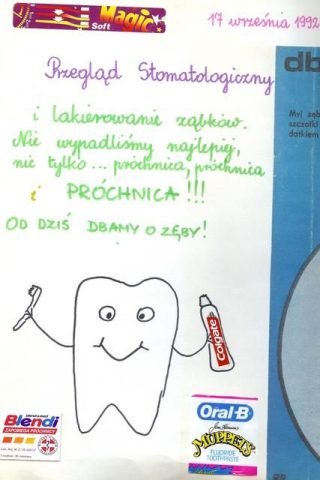 Magic
Soft
17 września 1992
Przegląd Stomatologiczny
i lakierowanie ząbków.
Nie wypadliśmy najlepiej,
nic tylko ... próchnica, próchnica
i PRÓCHNICA!!!
OD DZIŚ DBAMY O ZĘBY!
db
Myj zęb
szczotk
datkiem
Colgate
Blendi
ZAPOBIEGA PRÓCHNICY
Oral-B
Jim Henson's
MUPPETS
FLUORIDE
TOOTHPASTE